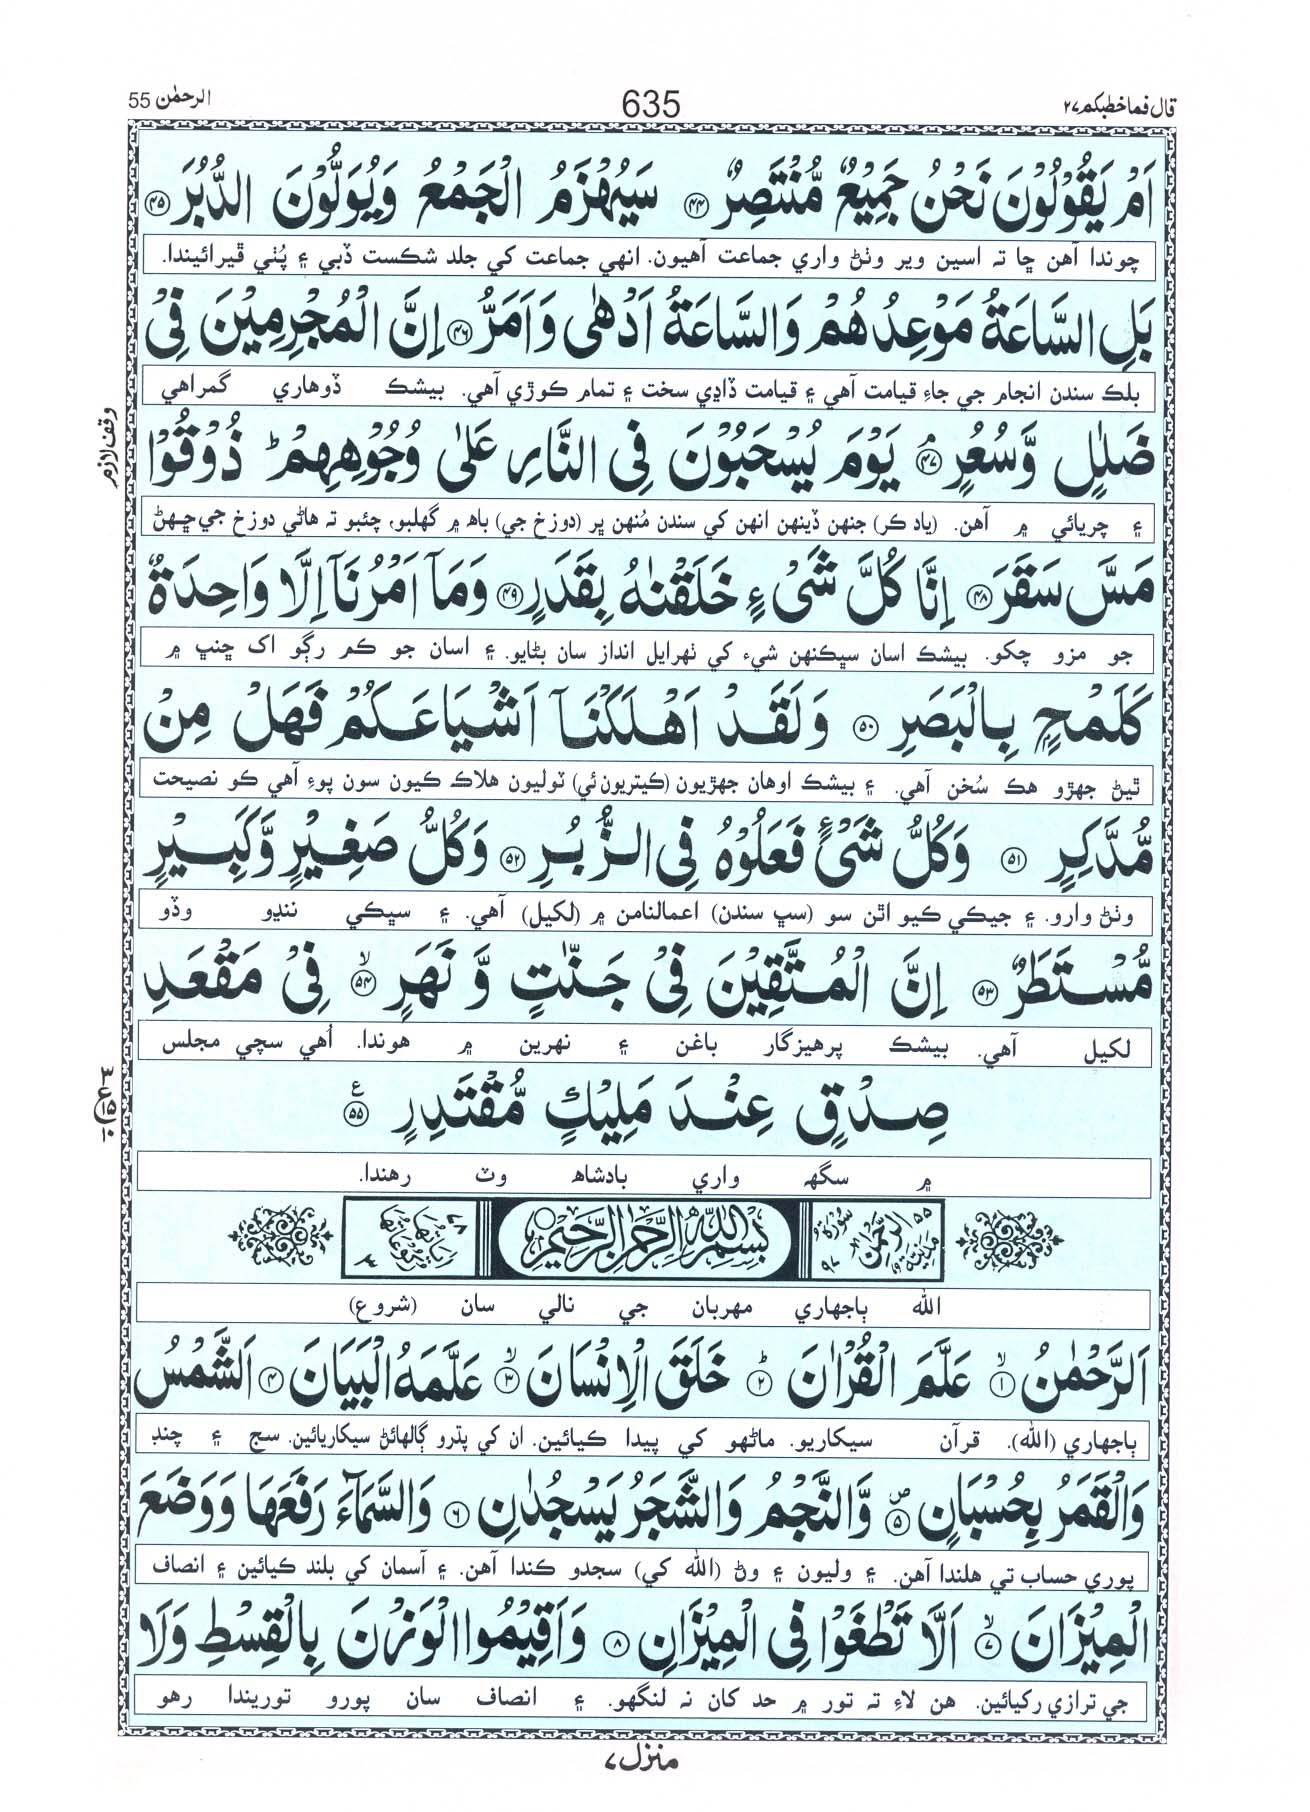 قال فماخطبكم ٢٧
635
الرحمٰن 55
اَمْ يَقُوْلُوْنَ نَحْنُ جَمِيْعٌ مُّنْتَصِرٌ ۝٤٤ سَيُهْزَمُ الْجَمْعُ وَيُوَلُّوْنَ الدُّبُرَ ۝٤٥
چوندا آهن ڇا ته اسين وير وٺڻ واري جماعت آهيون. انهي جماعت کي جلد شڪست ڏبي ۽ پُٺي ڦيرائيندا.
بَلِ السَّاعَةُ مَوْعِدُهُمْ وَالسَّاعَةُ اَدْهٰى وَاَمَرُّ ۝٤٦ اِنَّ الْمُجْرِمِيْنَ فِيْ
بلڪ سندن انجام جي جاءِ قيامت آهي ۽ قيامت ڏاڍي سخت ۽ تمام ڪوڙي آهي. بيشڪ ڏوهاري گمراهي
ضَلٰلٍ وَّسُعُرٍ ۝٤٧ۘ يَوْمَ يُسْحَبُوْنَ فِي النَّارِ عَلٰى وُجُوْهِهِمْ ؕ ذُوْقُوْا
وقف لازم
۽ چريائي ۾ آهن. (ياد ڪر) جنهن ڏينهن انهن کي سندن مُنهن ڀر (دوزخ جي) باهہ ۾ گهلبو، چئبو ته هاڻي دوزخ جي ڇهڻ
مَسَّ سَقَرَ ۝٤٨ اِنَّا كُلَّ شَيْءٍ خَلَقْنٰهُ بِقَدَرٍ ۝٤٩ وَمَآ اَمْرُنَآ اِلَّا وَاحِدَةٌ
جو مزو چکو. بيشڪ اسان سڀڪنهن شيء کي ٺهرايل انداز سان بڻايو. ۽ اسان جو ڪم رڳو اک ڇنڀ ۾
كَلَمْحٍۭ بِالْبَصَرِ ۝٥٠ وَلَقَدْ اَهْلَكْنَآ اَشْيَاعَكُمْ فَهَلْ مِنْ
ٿيڻ جهڙو هڪ سُخن آهي. ۽ بيشڪ اوهان جهڙيون (ڪيتريون ئي) ٽوليون هلاڪ ڪيون سون پوءِ آهي ڪو نصيحت
مُّدَّكِرٍ ۝٥١ وَكُلُّ شَيْءٍ فَعَلُوْهُ فِي الزُّبُرِ ۝٥٢ وَكُلُّ صَغِيْرٍ وَّكَبِيْرٍ
وٺڻ وارو. ۽ جيڪي ڪيو اٿن سو (سڀ سندن) اعمالنامن ۾ (لکيل) آهي. ۽ سڀڪي ننڍو وڏو
مُّسْتَطَرٌ ۝٥٣ اِنَّ الْمُتَّقِيْنَ فِيْ جَنّٰتٍ وَّنَهَرٍ ۝٥٤ۙ فِيْ مَقْعَدِ
لکيل آهي. بيشڪ پرهيزگار باغن ۽ نهرين ۾ هوندا. اُهي سچي مجلس
صِدْقٍ عِنْدَ مَلِيْكٍ مُّقْتَدِرٍ ۝٥٥ۧ
٣ ع ١٥ ١٠
۾ سگهہ واري بادشاهہ وٽ رهندا.
٥٥ سُوْرَةُ الرَّحْمٰنِ مَدَنِيَّةٌ ٩٧
بِسْمِ اللّٰهِ الرَّحْمٰنِ الرَّحِيْمِ
اٰيَاتُهَا ٧٨ رُكُوْعَاتُهَا ٣
الله ٻاجهاري مهربان جي نالي سان (شروع)
اَلرَّحْمٰنُ ۝١ۙ عَلَّمَ الْقُرْاٰنَ ۝٢ؕ خَلَقَ الْاِنْسَانَ ۝٣ۙ عَلَّمَهُ الْبَيَانَ ۝٤ اَلشَّمْسُ
ٻاجهاري (الله). قرآن سيکاريو. ماڻهو کي پيدا ڪيائين. ان کي پڌرو ڳالهائڻ سيکاريائين. سج ۽ چنڊ
وَالْقَمَرُ بِحُسْبَانٍ ۝٥۪ وَّالنَّجْمُ وَالشَّجَرُ يَسْجُدٰنِ ۝٦ وَالسَّمَآءَ رَفَعَهَا وَوَضَعَ
پوري حساب تي هلندا آهن. ۽ وليون ۽ وڻ (الله کي) سجدو ڪندا آهن. ۽ آسمان کي بلند ڪيائين ۽ انصاف
الْمِيْزَانَ ۝٧ۙ اَلَّا تَطْغَوْا فِي الْمِيْزَانِ ۝٨ وَاَقِيْمُوا الْوَزْنَ بِالْقِسْطِ وَلَا
جي ترازي رکيائين. هن لاءِ ته تور ۾ حد کان نہ لنگهو. ۽ انصاف سان پورو توريندا رهو
منزل ٧